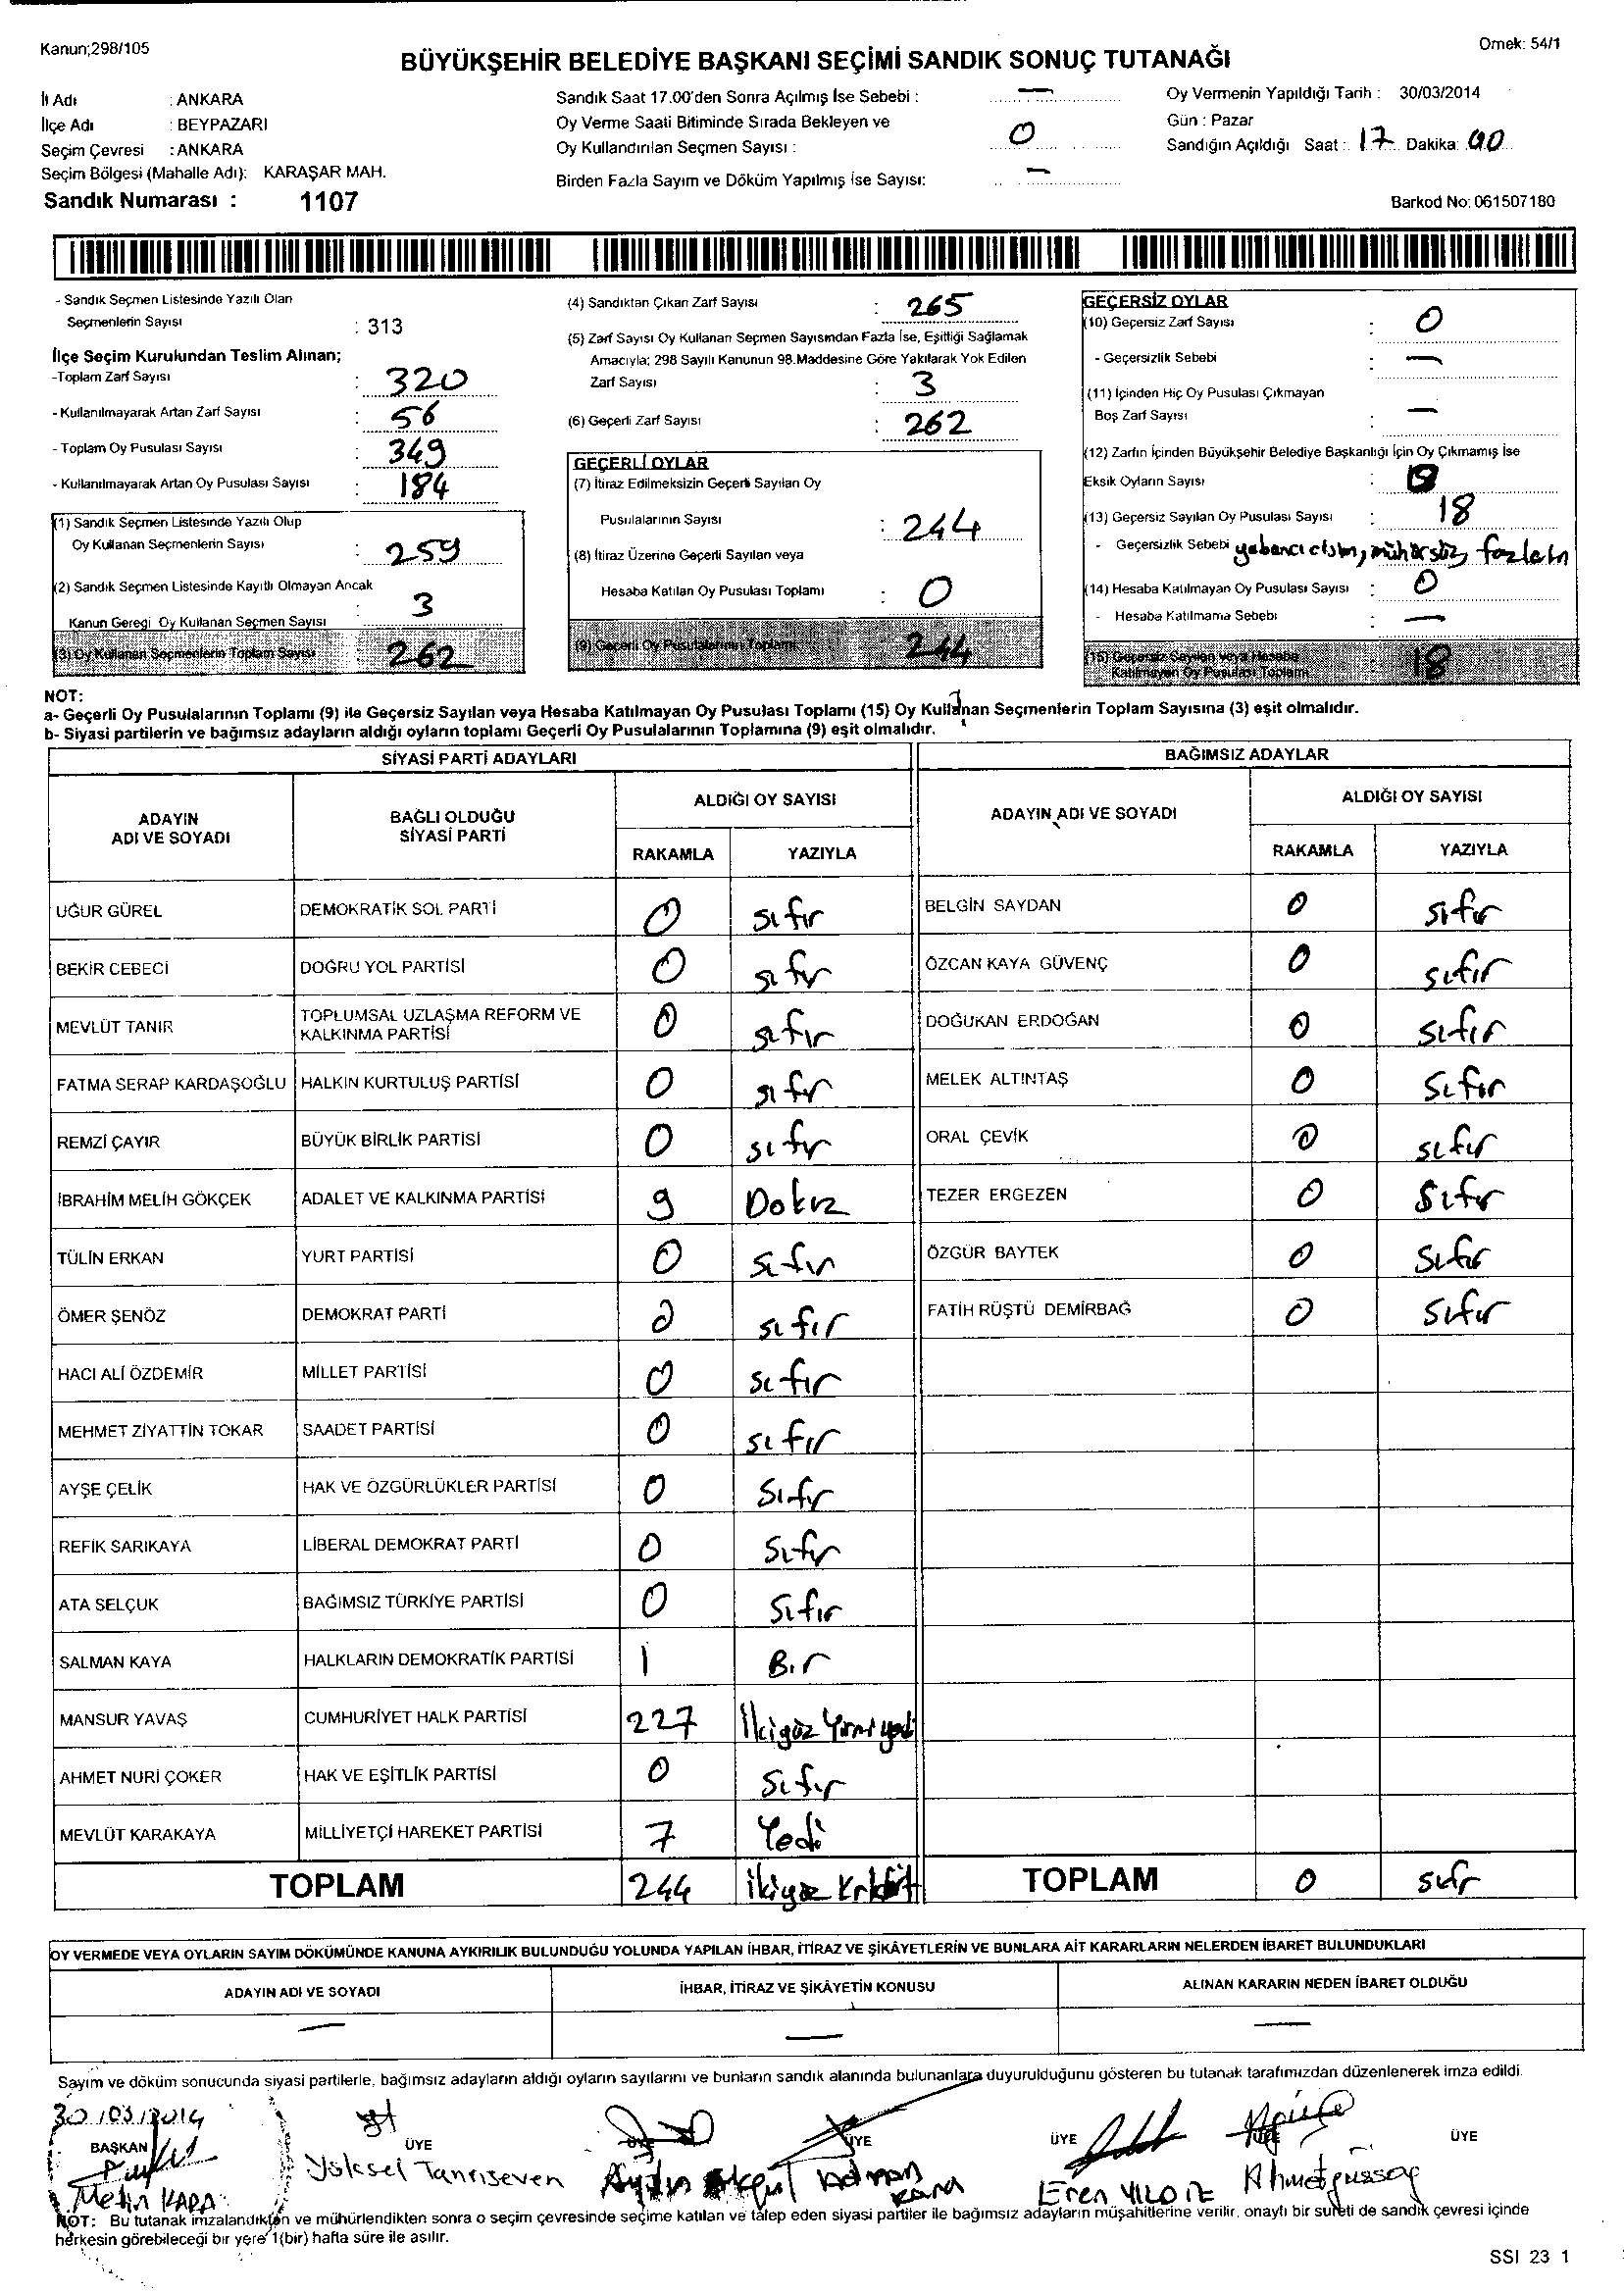 Kanun;298/105
Örnek: 54/1
BÜYÜKŞEHİR BELEDİYE BAŞKANI SEÇİMİ SANDIK SONUÇ TUTANAĞI
İl Adı : ANKARA
İlçe Adı : BEYPAZARI
Seçim Çevresi : ANKARA
Seçim Bölgesi (Mahalle Adı): KARAŞAR MAH.
Sandık Numarası : 1107
Sandık Saat 17.00'den Sonra Açılmış İse Sebebi : —
Oy Verme Saati Bitiminde Sırada Bekleyen ve
Oy Kullandırılan Seçmen Sayısı : 0
Birden Fazla Sayım ve Döküm Yapılmış İse Sayısı: —
Oy Vermenin Yapıldığı Tarih : 30/03/2014
Gün : Pazar
Sandığın Açıldığı Saat : 17 Dakika: 00
Barkod No: 061507180
- Sandık Seçmen Listesinde Yazılı Olan
Seçmenlerin Sayısı : 313
İlçe Seçim Kurulundan Teslim Alınan;
-Toplam Zarf Sayısı : 320
- Kullanılmayarak Artan Zarf Sayısı : 56
- Toplam Oy Pusulası Sayısı : 349
- Kullanılmayarak Artan Oy Pusulası Sayısı : 184
(1) Sandık Seçmen Listesinde Yazılı Olup
Oy Kullanan Seçmenlerin Sayısı : 259
(2) Sandık Seçmen Listesinde Kayıtlı Olmayan Ancak
Kanun Gereği Oy Kullanan Seçmen Sayısı : 3
(3) Oy Kullanan Seçmenlerin Toplam Sayısı 262
(4) Sandıktan Çıkan Zarf Sayısı : 265
(5) Zarf Sayısı Oy Kullanan Seçmen Sayısından Fazla İse, Eşitliği Sağlamak
Amacıyla; 298 Sayılı Kanunun 98.Maddesine Göre Yakılarak Yok Edilen
Zarf Sayısı : 3
(6) Geçerli Zarf Sayısı : 262
GEÇERLİ OYLAR
(7) İtiraz Edilmeksizin Geçerli Sayılan Oy
Pusulalarının Sayısı : 244
(8) İtiraz Üzerine Geçerli Sayılan veya
Hesaba Katılan Oy Pusulası Toplamı : 0
(9) Geçerli Oy Pusulalarının Toplamı 244
GEÇERSİZ OYLAR
(10) Geçersiz Zarf Sayısı : 0
- Geçersizlik Sebebi : —
(11) İçinden Hiç Oy Pusulası Çıkmayan
Boş Zarf Sayısı : —
(12) Zarfın İçinden Büyükşehir Belediye Başkanlığı İçin Oy Çıkmamış İse
Eksik Oyların Sayısı :
(13) Geçersiz Sayılan Oy Pusulası Sayısı : 18
- Geçersizlik Sebebi yabancı cisim, mühürsüz,
(14) Hesaba Katılmayan Oy Pusulası Sayısı : 0
- Hesaba Katılmama Sebebi : —
(15) Geçersiz Sayılan veya Hesaba
Katılmayan Oy Pusulası Toplamı 18
NOT:
a- Geçerli Oy Pusulalarının Toplamı (9) ile Geçersiz Sayılan veya Hesaba Katılmayan Oy Pusulası Toplamı (15) Oy Kullanan Seçmenlerin Toplam Sayısına (3) eşit olmalıdır.
b- Siyasi partilerin ve bağımsız adayların aldığı oyların toplamı Geçerli Oy Pusulalarının Toplamına (9) eşit olmalıdır.
SİYASİ PARTİ ADAYLARI
ADAYIN ADI VE SOYADI BAĞLI OLDUĞU SİYASİ PARTİ ALDIĞI OY SAYISI
RAKAMLA YAZIYLA
UĞUR GÜREL DEMOKRATİK SOL PARTİ 0 sıfır
BEKİR CEBECİ DOĞRU YOL PARTİSİ 0 sıfır
MEVLÜT TANIR TOPLUMSAL UZLAŞMA REFORM VE KALKINMA PARTİSİ 0 sıfır
FATMA SERAP KARDAŞOĞLU HALKIN KURTULUŞ PARTİSİ 0 sıfır
REMZİ ÇAYIR BÜYÜK BİRLİK PARTİSİ 0 sıfır
İBRAHİM MELİH GÖKÇEK ADALET VE KALKINMA PARTİSİ 9 Dokuz
TÜLİN ERKAN YURT PARTİSİ 0 sıfır
ÖMER ŞENÖZ DEMOKRAT PARTİ 0 sıfır
HACI ALİ ÖZDEMİR MİLLET PARTİSİ 0 sıfır
MEHMET ZİYATTİN TOKAR SAADET PARTİSİ 0 sıfır
AYŞE ÇELİK HAK VE ÖZGÜRLÜKLER PARTİSİ 0 sıfır
REFİK SARIKAYA LİBERAL DEMOKRAT PARTİ 0 sıfır
ATA SELÇUK BAĞIMSIZ TÜRKİYE PARTİSİ 0 sıfır
SALMAN KAYA HALKLARIN DEMOKRATİK PARTİSİ 1 Bir
MANSUR YAVAŞ CUMHURİYET HALK PARTİSİ 227 İkiyüz Yirmi yedi
AHMET NURİ ÇOKER HAK VE EŞİTLİK PARTİSİ 0 sıfır
MEVLÜT KARAKAYA MİLLİYETÇİ HAREKET PARTİSİ 7 Yedi
TOPLAM 244 ikiyüz Kırkdört
BAĞIMSIZ ADAYLAR
ADAYIN ADI VE SOYADI ALDIĞI OY SAYISI
RAKAMLA YAZIYLA
BELGİN SAYDAN 0 sıfır
ÖZCAN KAYA GÜVENÇ 0 sıfır
DOĞUKAN ERDOĞAN 0 sıfır
MELEK ALTINTAŞ 0 sıfır
ORAL ÇEVİK 0 sıfır
TEZER ERGEZEN 0 sıfır
ÖZGÜR BAYTEK 0 sıfır
FATİH RÜŞTÜ DEMİRBAĞ 0 sıfır
TOPLAM 0 sıfır
OY VERMEDE VEYA OYLARIN SAYIM DÖKÜMÜNDE KANUNA AYKIRILIK BULUNDUĞU YOLUNDA YAPILAN İHBAR, İTİRAZ VE ŞİKÂYETLERİN VE BUNLARA AİT KARARLARIN NELERDEN İBARET BULUNDUKLARI
ADAYIN ADI VE SOYADI İHBAR, İTİRAZ VE ŞİKÂYETİN KONUSU ALINAN KARARIN NEDEN İBARET OLDUĞU
— — —
Sayım ve döküm sonucunda siyasi partilerle, bağımsız adayların aldığı oyların sayılarını ve bunların sandık alanında bulunanlara duyurulduğunu gösteren bu tutanak tarafımızdan düzenlenerek imza edildi.
30/03/2014
BAŞKAN ÜYE ÜYE ÜYE ÜYE ÜYE ÜYE
Metin KARA Yüksel Tanrıseven Aydın Adnan Kara Eren YILDIZ Ahmet
NOT: Bu tutanak imzalandıktan ve mühürlendikten sonra o seçim çevresinde seçime katılan ve talep eden siyasi partiler ile bağımsız adayların müşahitlerine verilir, onaylı bir sureti de sandık çevresi içinde
herkesin görebileceği bir yere 1(bir) hafta süre ile asılır.
SSI 23 1